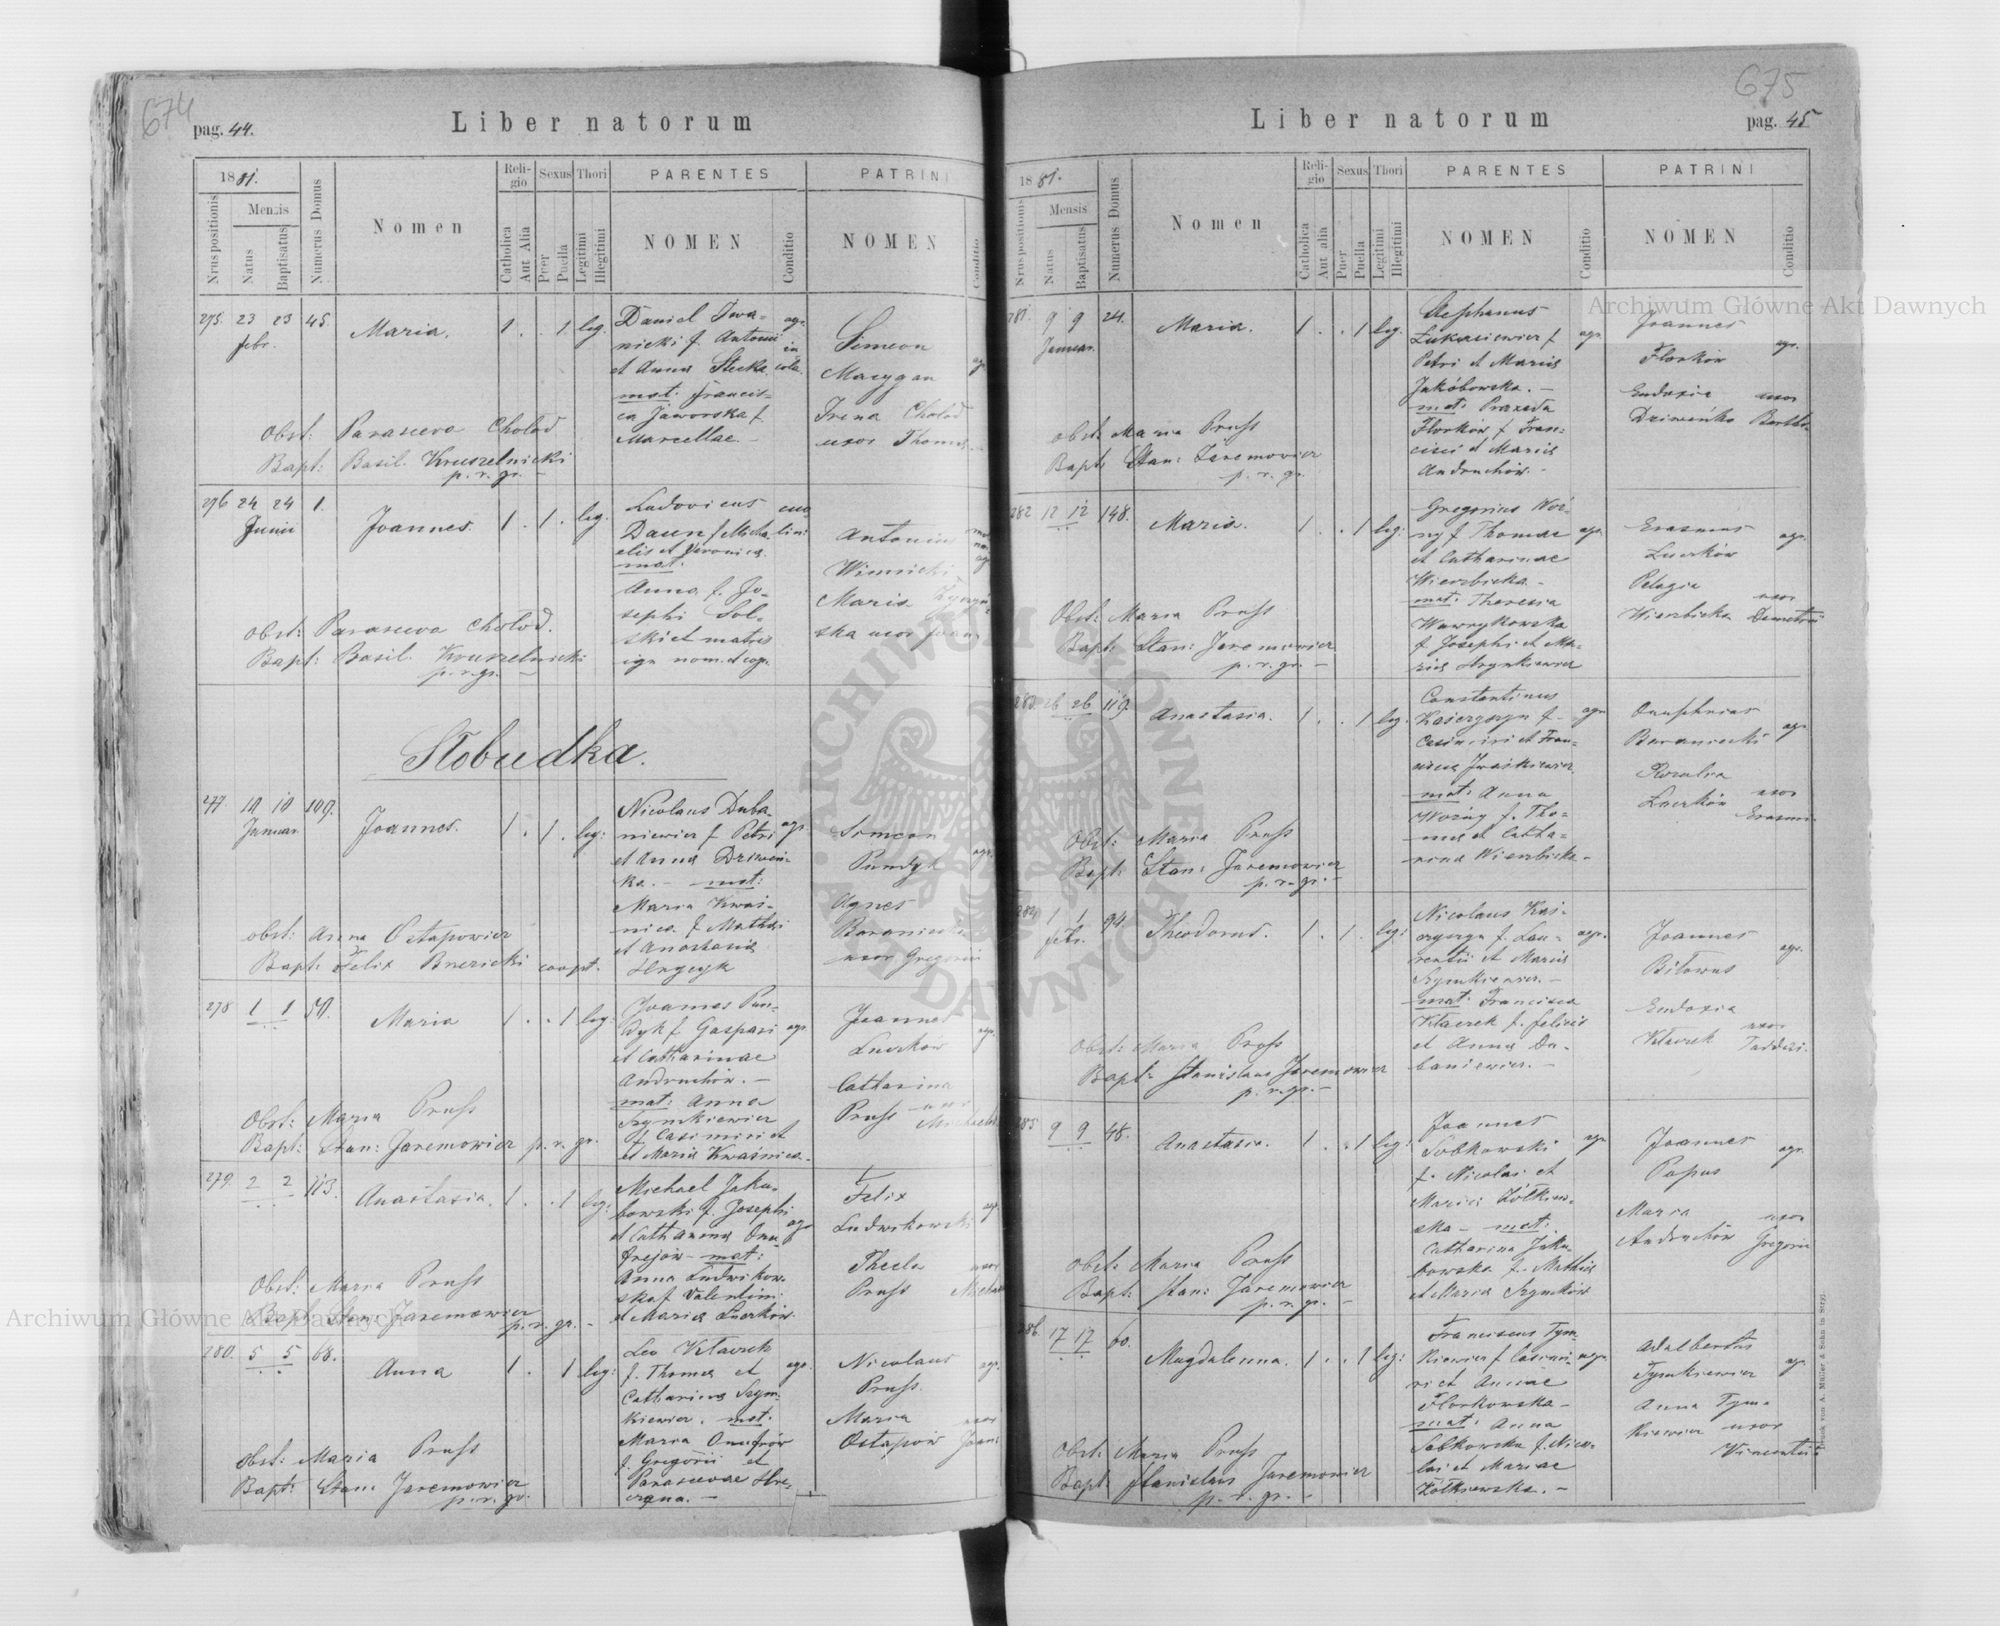 674
pag. 44.
Liber natorum
1881.
Mensis
Nrus positionis
Natus
Baptisatus
Numerus Domus
Nomen
Religio
Catholica
Aut Alia
Sexus
Puer
Puella
Thori
Legitimi
Illegitimi
PARENTES
NOMEN
Conditio
PATRINI
NOMEN
Conditio
275. 23 23 45. Maria. 1 . . 1. leg.
febr.
Daniel Iwa-
nicki f. Antonii
et Anna Stecka.
mat: Francis-
ca Jaworska f.
Marcellae. –
agr.
in
cola.
Simeon
Maczgan
Irena Cholod
uxor Thomae
Obst: Parasceva Cholod
Bapt: Basil. Kruszelnicki
p. r. gr. –
276 24 24 1. Joannes. 1 . 1 . leg.
Junii
Ludovicus
Daun f. Micha-
elis et Veronica.
mat:
Anna f. Jo-
sephi Sol-
ski et matris
ign. nom. et cog.
Antonius
Winnicki
Maria
ska uxor Joan
Obst: Parasceva Cholod.
Bapt: Basil. Kruszelnicki
p. r. gr. –
Słobudka.
277 10 10 109. Joannes. 1 . 1 . leg:
Januar.
Nicolaus Duba-
niewicz f. Petri
et Anna Dziwoń-
ka. – mat:
Maria Kwaś-
nica f. Mathei
et Anastasia
Hryczyk
agr.
Simeon
Pundyk
agr.
Agnes
Baraniecka
uxor Gregorii
obst: Anna Ostapowicz
Bapt: Felix Brzezicki coopt.
278 1 1 50. Maria 1 . . 1 leg:
Joannes Pun-
dyk f. Gaspari
et Catharinae
Andruchów. –
mat: Anna
Szymkiewicz
f. Casimiri et
et Maria Kwaśnica.
agr.
Joannes
Luczków
agr.
Catharina
Pruss uxor
Michaelis
Obst: Maria Pruss
Bapt: Stan: Jaremowicz p. r. gr.
279. 2 2 113. Anastasia. 1 . . 1 leg:
Michael Jaku-
bowski f. Josephi
et Catharina Onu-
frejów – mat:
Anna Ludwikow-
ska f. Valentini
et Maria Luczków.
agr.
Felix
Ludwikowski
agr.
Thecla uxor
Pruss Michae
Obst: Maria Pruss
Bapt: Stan: Jaremowicz
p. r. gr. –
280. 5 5 68. Anna 1 . 1 leg:
Leo Kłaczek
f. Thomae et
Catharina Szym-
kiewicz. mat:
Maria Onufrów
f. Gregorii et
Parascevae Hry-
czyna. –
agr.
Nicolaus
Pruss.
agr.
Maria uxor
Ostapów Joan:
Obst: Maria Pruss
Bapt: Stan: Jaremowicz
p. r. gr.
675
Liber natorum
pag. 45
1881.
Mensis
Nrus positionis
Natus
Baptisatus
Numerus Domus
Nomen
Religio
Catholica
Aut alia
Sexus
Puer
Puella
Thori
Legitimi
Illegitimi
PARENTES
NOMEN
Conditio
PATRINI
NOMEN
Conditio
281. 9 9 24. Maria. 1 . . 1 leg:
Januar.
Stephanus
Łukasiewicz f.
Petri et Maria
Jakóbowska. –
mat: Praxeda
Florków f. Fran-
cisci et Maria
Andruchów. –
agr.
Joannes
Florków
agr.
Eudoxia uxor
Dziwońka Bartho-
Obst: Maria Pruss
Bapt: Stan: Jaremowicz
p. r. gr.
282 12 12 148. Maria. 1 . . 1 leg:
Gregorius Woź-
ny f. Thomae
et Catharinae
Wierzbicka –
mat: Theresia
Wawrykowska
f. Josephi et Ma-
ria Szymkiewicz
agr.
Erasmus
Luczków
agr.
Pelagia uxor
Wierzbicka Demetrii
Obst: Maria Pruss
Bapt: Stan: Jaremowicz
p. r. gr. –
283. 26 26 119. Anastasia. 1 . . 1 leg.
Constantinus
Kaśczyszyn f.
Casimiri et Fran-
cisca Iwaśkiewicz.
mat: Anna
Woźny f. Tho-
mae et Catha-
rina Wierzbicka –
agr.
Onuphrius
Baraniecki
agr.
Rozalia
Luczków uxor
Erasmi
Obst: Maria Pruss
Bapt: Stan: Jaremowicz
p. r. gr. –
284 1 1 94. Theodorus. 1 . 1 . leg:
febr.
Nicolaus Kaś-
czyszyn f. Lau-
rentii et Maria
Szymkiewicz. –
mat: Francisca
Kłaczek f. Felicis
et Anna Du-
baniewicz. –
agr.
Joannes
Bitowus
agr.
Eudoxia uxor
Kłaczek Taddei.
Obst: Maria Pruss
Bapt: Stanislaus Jaremowicz
p. r. gr. –
285 9 9 48. Anastasia. 1 . . 1 leg:
Joannes
Sobkowski
f. Nicolai et
Maria Żółkiew-
ska – mat:
Catharina Jaku-
bowska f. Mathiae
et Maria Szymków
agr.
Joannes
Popus
agr.
Maria uxor
Andruchów Gregorii
Obst: Maria Pruss
Bapt: Stan: Jaremowicz
p. r. gr. –
286. 17 17 60. Magdalenna. 1 . . 1 leg:
Franciscus Tym-
kiewicz f. Casimi-
ri et Annae
Florkowska –
mat: Anna
Sobkowska f. Nico-
lai et Mariae
Żółkiewska. –
agr.
Adalbertus
Tymkiewicz
agr.
Anna Tym-
kiewicz uxor
Vincentii
Obst: Maria Pruss
Bapt: Stanislaus Jaremowicz
p. r. gr. –
Druck von A. Müller & Sohn in Stryj.
Archiwum Główne Akt Dawnych
Archiwum Główne Akt Dawnych
ARCHIWUM GŁÓWNE AKT DAWNYCH